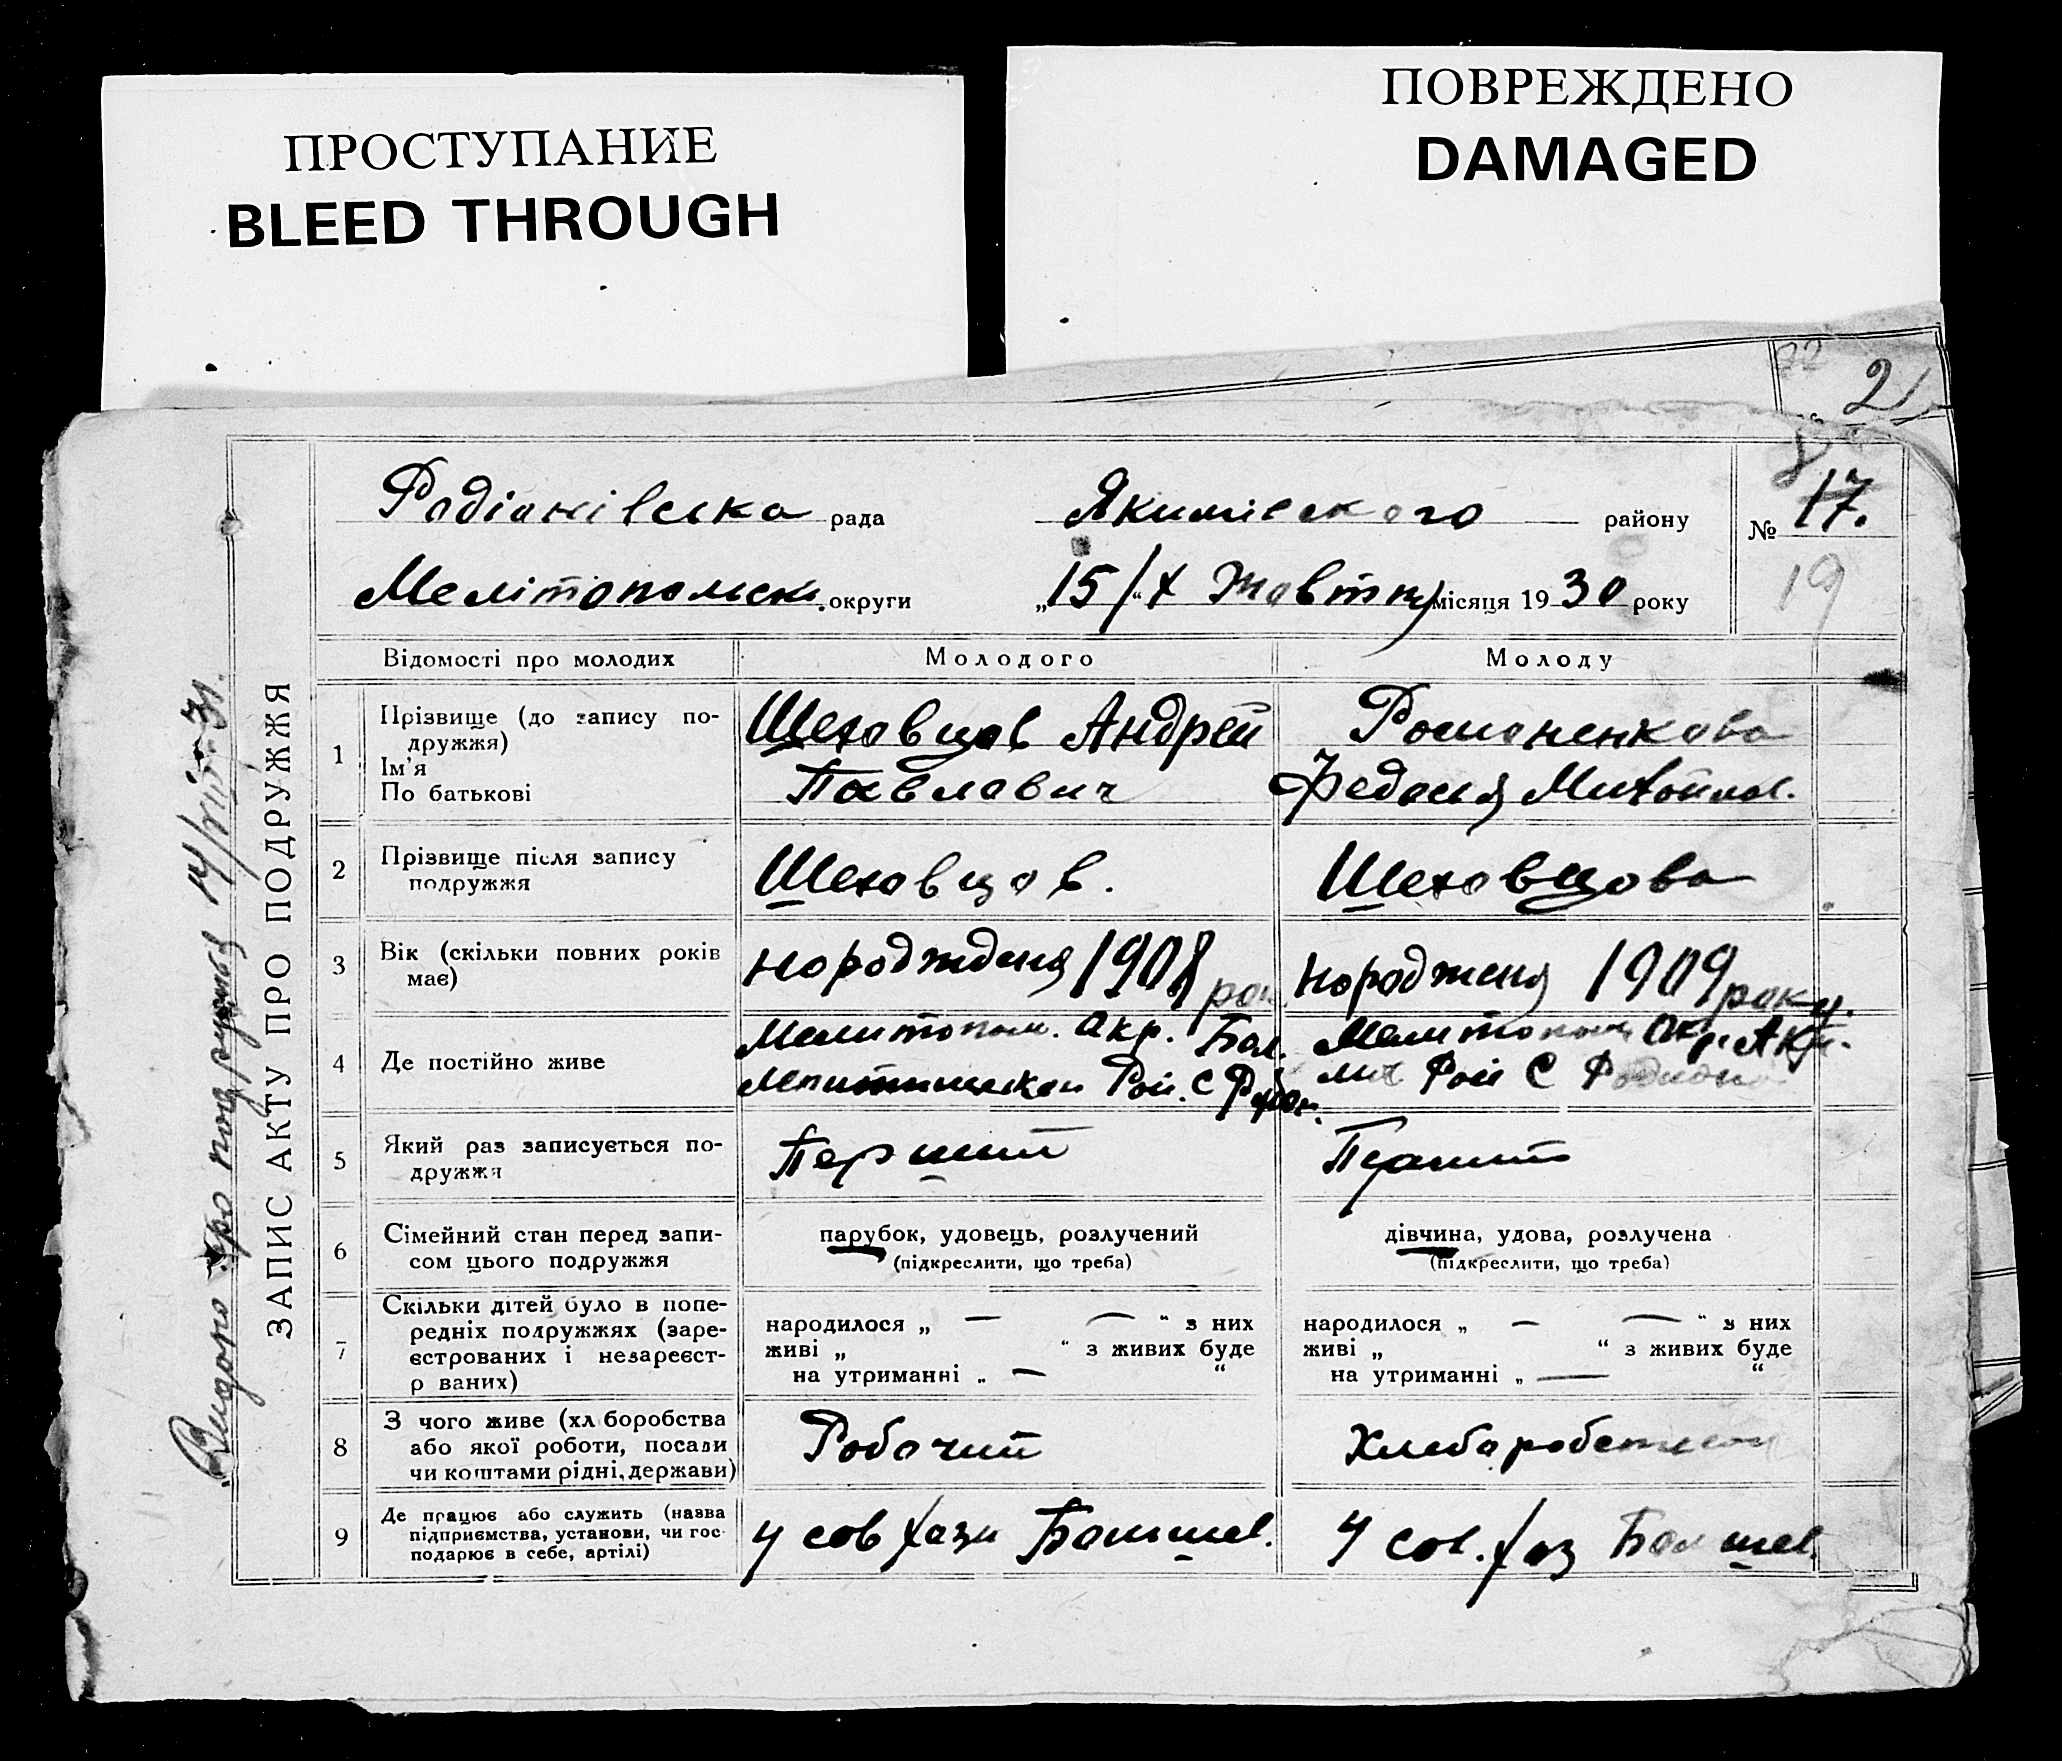 ПРОСТУПАНИЕ
BLEED THROUGH
ПОВРЕЖДЕНО
DAMAGED
22
21
Радіонівська рада Якимівского району № 17.
Мелітопольск. округи „15/X“ Жовтня місяця 1930 року 19
Видоно про 14/VIII-31.
ЗАПИС АКТУ ПРО ПОДРУЖЖЯ
Відомості про молодих Молодого Молоду
1 Прізвище (до запису по-
дружжя)
Ім'я
По батькові
Шеховцов Андрей
Павлович
Романенкова
Федосия Михайлов.
2 Прізвище після запису
подружжя
Шеховцов.
Шеховцова
3 Вік (скільки повних років
має)
1908
1909 року.
4 Де постійно живе
Мелитопол. Окр. Бол.
Рой. С
Мелитопол Окр. Аки-
Рой С
5 Який раз записується по-
дружжя
Перший
6 Сімейний стан перед запи-
сом цього подружжя
парубок, удовець, розлучений
(підкреслити, що треба)
дівчина, удова, розлучена
(підкреслити, що треба)
7 Скільки дітей було в попе-
редніх подружжях (заре-
єстрованих і незареєст-
р ваних)
народилося „ — — “ з них
живі „ “ з живих буде
на утриманні „ — “
народилося „ — — “ з них
живі „ “ з живих буде
на утриманні „ — “
8 З чого живе (хл боробства
або якої роботи, посади
чи коштами рідні, держави)
Робочий
9 Де працює або служить (назва
підприємства, установи, чи гос-
подарює в себе, артілі)
У совхази Большев.
У сов.хоз Большев.